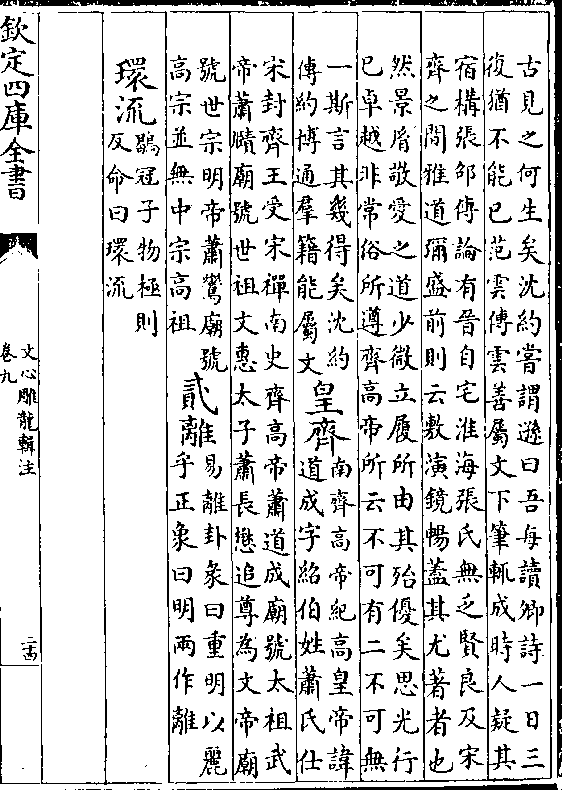 古見之何生矣沈約嘗謂遜曰吾每讀卿詩一日三
復猶不能已范雲傳雲善屬文下筆輒成時人疑其
宿構張邵傳論有晉自宅淮海張氏無乏賢良及宋
齊之間雅道彌盛前則云敷演鏡暢蓋其尤著者也
然景胤敬愛之道少微立履所由其殆優矣思光行
已卓越非常俗所遵齊高帝所云不可有二不可無
一斯言其幾得矣沈約
傳約博通羣籍能屬文
皇齊
南齊高帝紀高皇帝諱
道成字紹伯姓蕭氏仕
宋封齊王受宋禪南史齊高帝蕭道成廟號太祖武
帝蕭賾廟號世祖文惠太子蕭長懋追尊為文帝廟
號世宗明帝蕭鸞廟號
高宗並無中宗高祖
貳離
易離卦彖曰重明以麗
乎正象曰明兩作離
環流
鶡冠子物極則
反命曰環流
欽定四庫全書
文心雕龍輯注
卷九
二十四